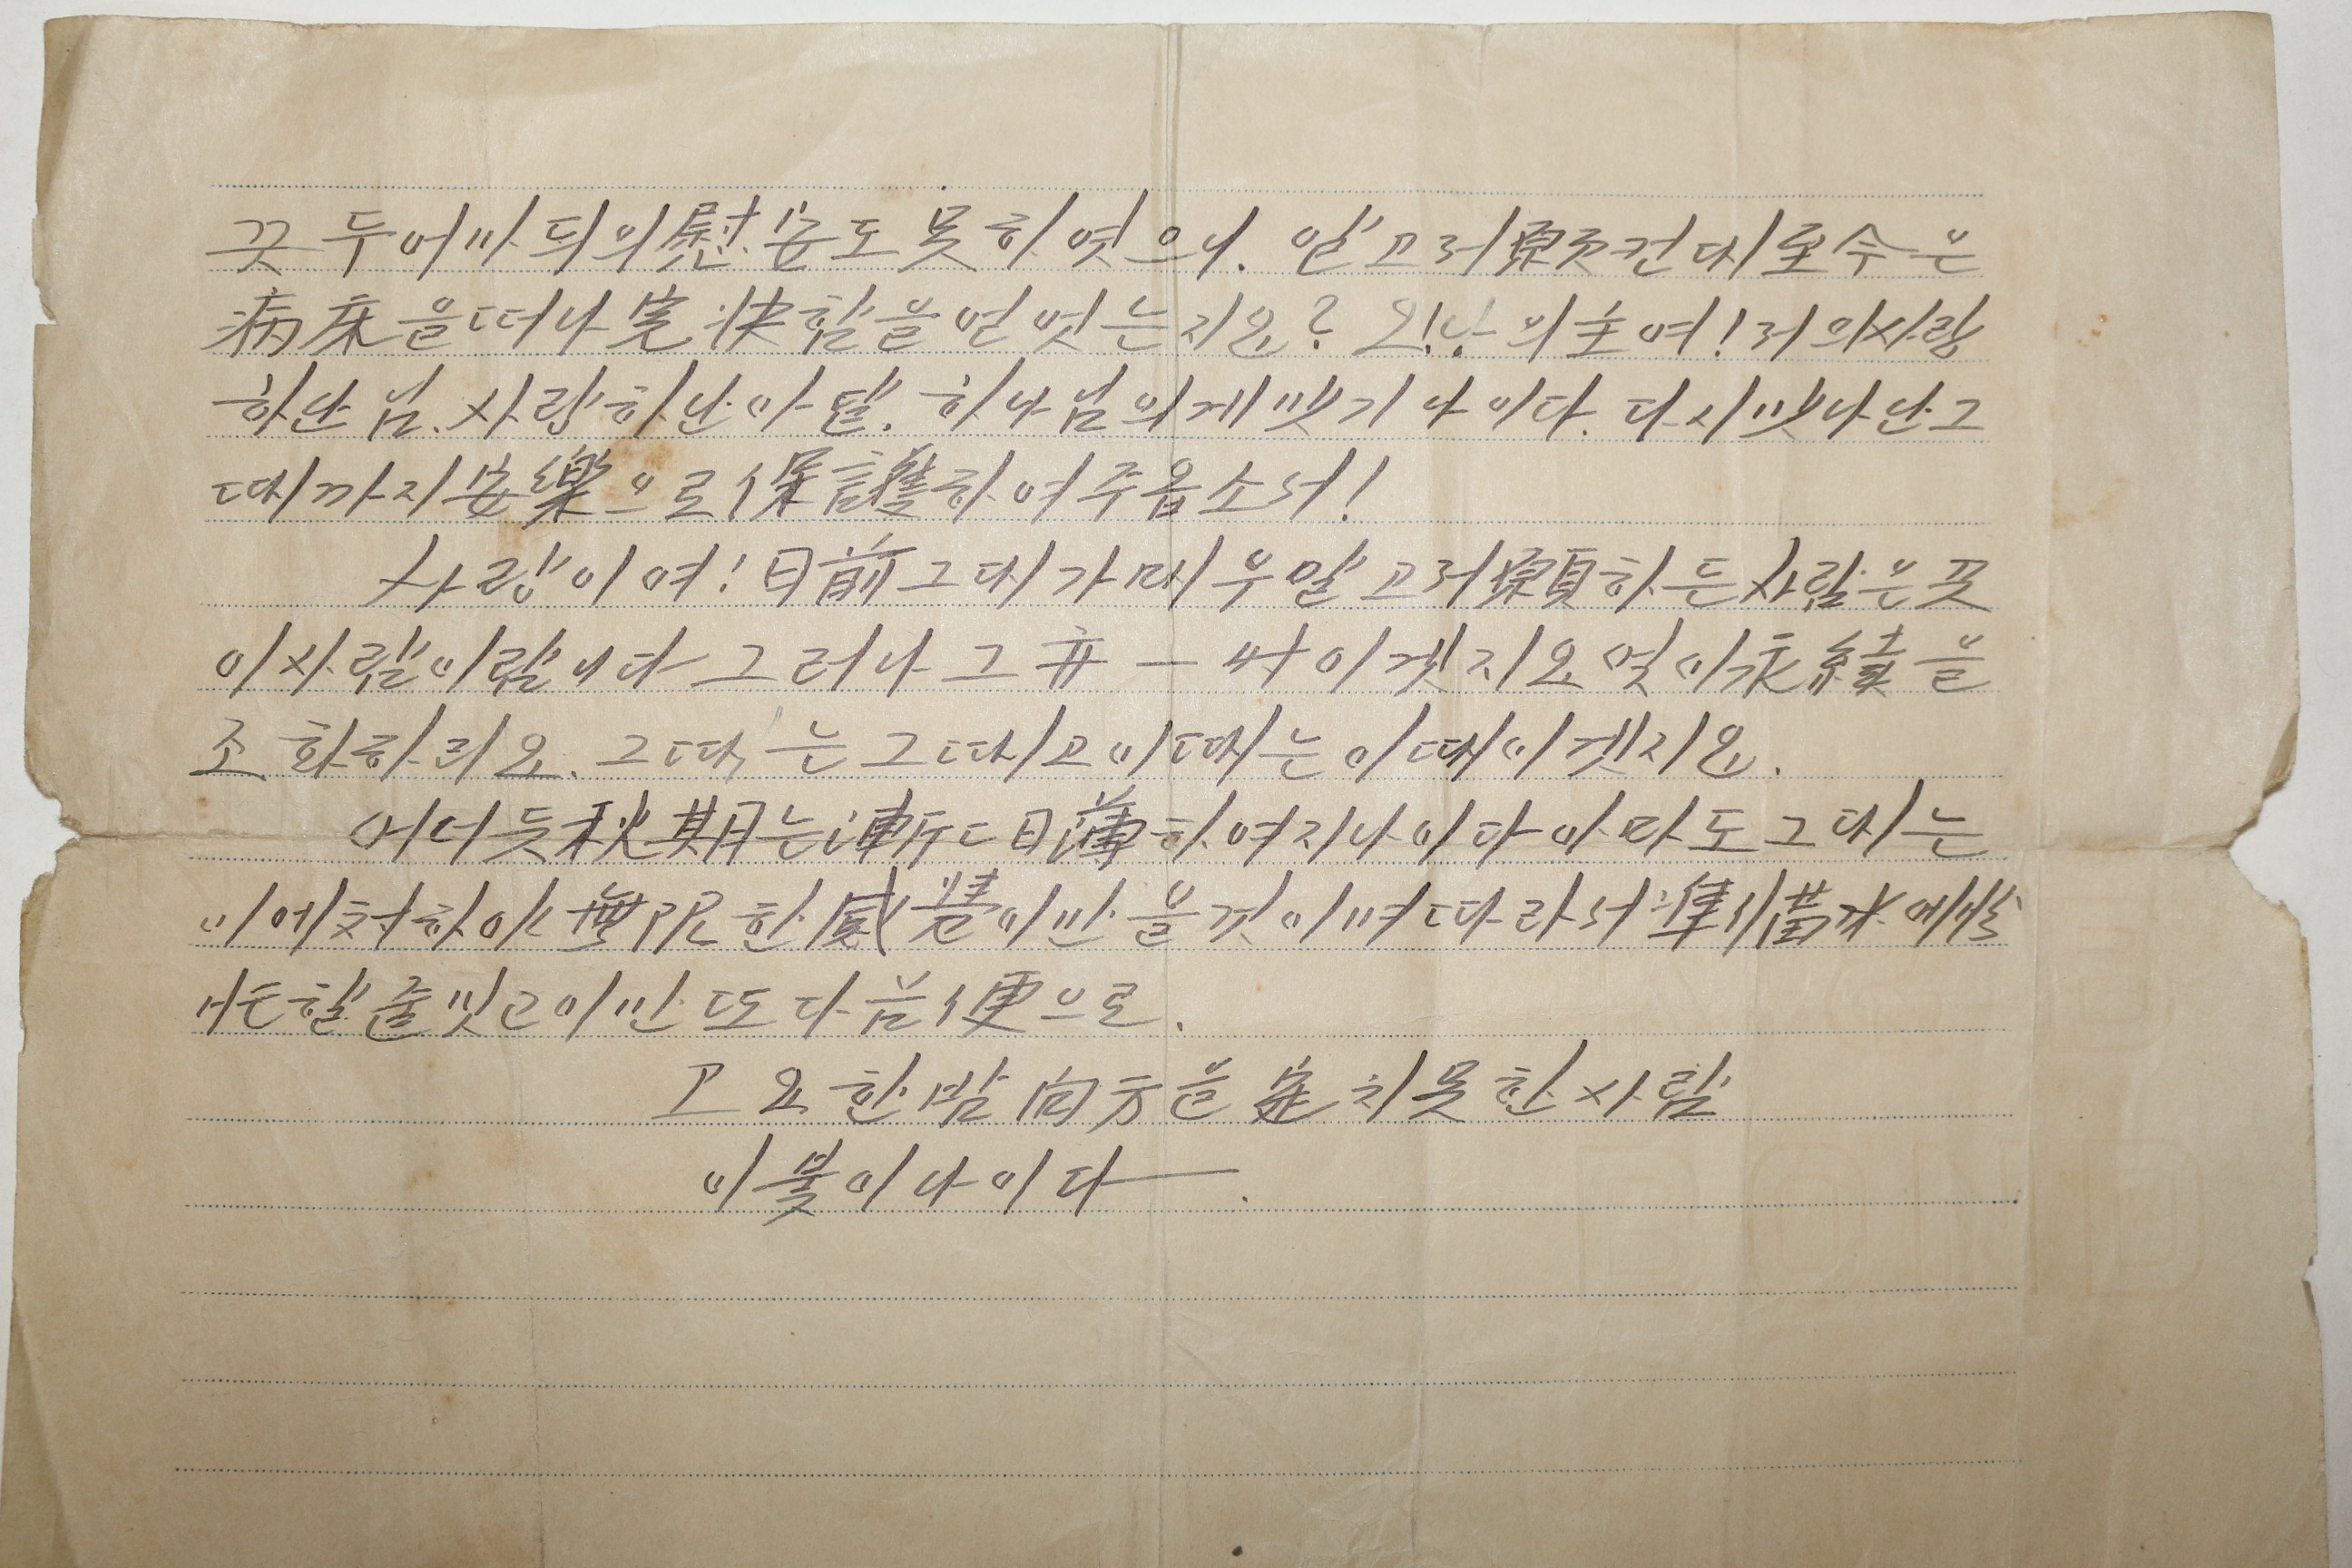 끗 두어마듸의慰安도못하엿으니. 알고저願컨대至今은
病床을떠나完快함을얻엇는지요? 의主여! 저의사랑
하난님. 사랑하난아달. 하나님의게맛기나이다. 다시맛나난그
때까지安樂으로保護하여주옵소서!
사랑이여! 日前그대가매우알고저願하든사람은꼿
이사람이람니다 그러나그亦一時이겟지요 엇이永續을
조화하리요. 그때는그때고이때는이때이겟지요.
어너듯秋期는漸々日薄하여지나이다 아마도그대는
이에対하야無限한感慌이만을것이며따라서準備次에
忙할줄밋고이만또다음便으로.
고요한밤向方을定치못한사람
이붓이나이다